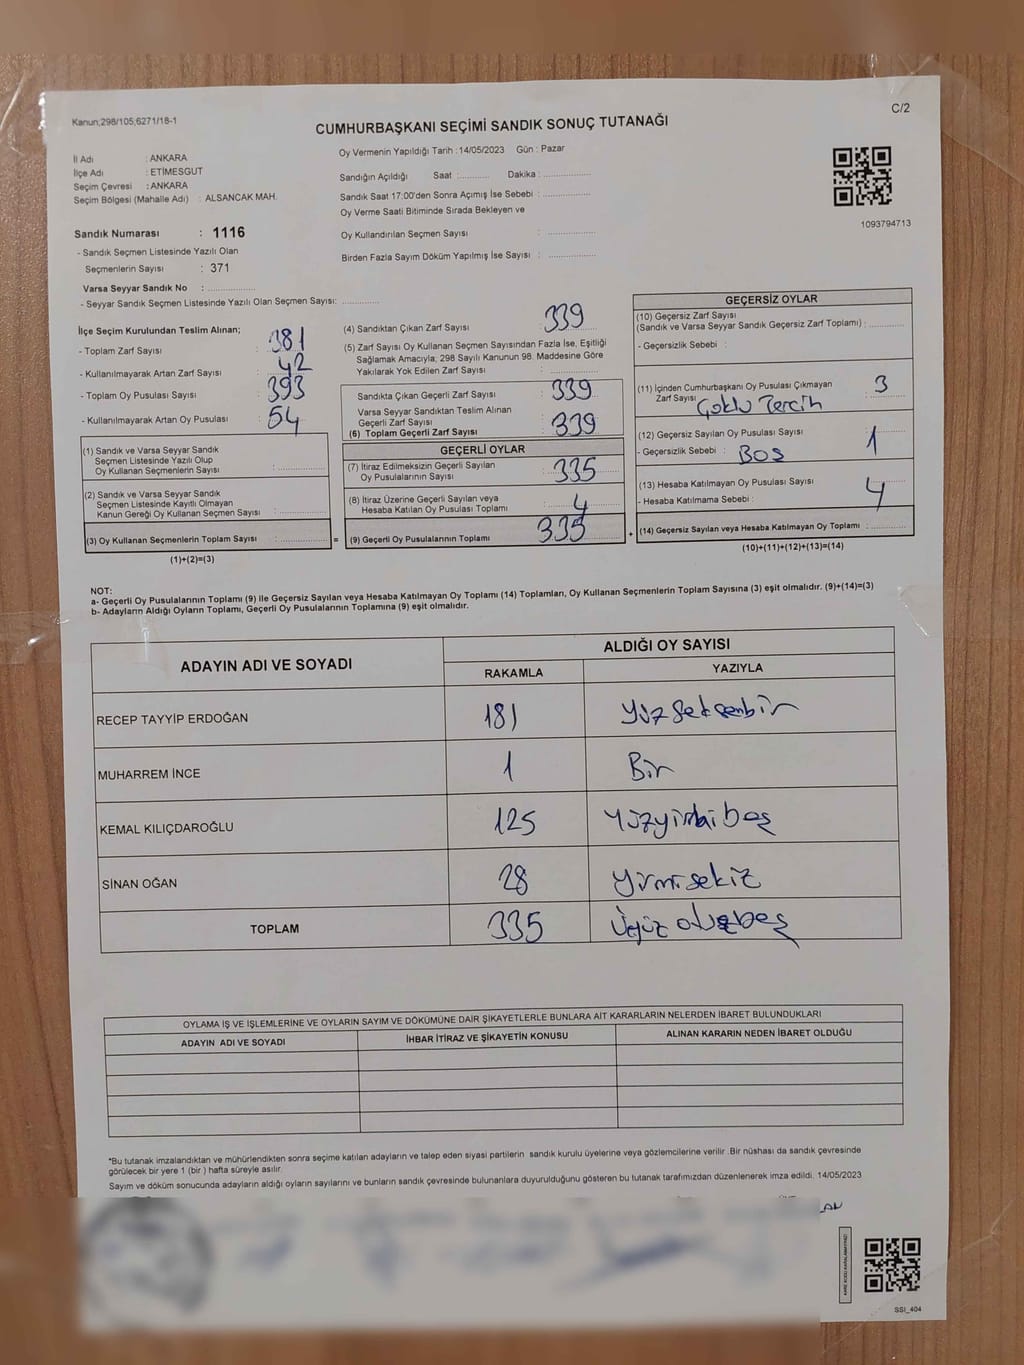 Kanun;298/105,6271/18-1
C/2
CUMHURBAŞKANI SEÇİMİ SANDIK SONUÇ TUTANAĞI
İl Adı : ANKARA
İlçe Adı : ETİMESGUT
Seçim Çevresi : ANKARA
Seçim Bölgesi (Mahalle Adı) : ALSANCAK MAH.
Oy Vermenin Yapıldığı Tarih : 14/05/2023 Gün : Pazar
Sandığın Açıldığı Saat :........... Dakika :...............
Sandık Saat 17:00'den Sonra Açımış İse Sebebi :...............
Oy Verme Saati Bitiminde Sırada Bekleyen ve
Oy Kullandırılan Seçmen Sayısı :...............
Birden Fazla Sayım Döküm Yapılmış İse Sayısı :...............
1093794713
Sandık Numarası : 1116
- Sandık Seçmen Listesinde Yazılı Olan
Seçmenlerin Sayısı : 371
Varsa Seyyar Sandık No :...............
- Seyyar Sandık Seçmen Listesinde Yazılı Olan Seçmen Sayısı: ............
İlçe Seçim Kurulundan Teslim Alınan;
- Toplam Zarf Sayısı : 381
- Kullanılmayarak Artan Zarf Sayısı : 42
- Toplam Oy Pusulası Sayısı : 393
- Kullanılmayarak Artan Oy Pusulası : 54
(1) Sandık ve Varsa Seyyar Sandık
Seçmen Listesinde Yazılı Olup
Oy Kullanan Seçmenlerin Sayısı :...............
(2) Sandık ve Varsa Seyyar Sandık
Seçmen Listesinde Kayıtlı Olmayan
Kanun Gereği Oy Kullanan Seçmen Sayısı :...............
(3) Oy Kullanan Seçmenlerin Toplam Sayısı :............... =
(1)+(2)=(3)
(4) Sandıktan Çıkan Zarf Sayısı : 339
(5) Zarf Sayısı Oy Kullanan Seçmen Sayısından Fazla İse, Eşitliği
Sağlamak Amacıyla; 298 Sayılı Kanunun 98. Maddesine Göre
Yakılarak Yok Edilen Zarf Sayısı :...............
Sandıkta Çıkan Geçerli Zarf Sayısı : 339
Varsa Seyyar Sandıktan Teslim Alınan
Geçerli Zarf Sayısı :
(6) Toplam Geçerli Zarf Sayısı : 339
GEÇERLİ OYLAR
(7) İtiraz Edilmeksizin Geçerli Sayılan
Oy Pusulalarının Sayısı : 335
(8) İtiraz Üzerine Geçerli Sayılan veya
Hesaba Katılan Oy Pusulası Toplamı : 4
(9) Geçerli Oy Pusulalarının Toplamı : 335 +
GEÇERSİZ OYLAR
(10) Geçersiz Zarf Sayısı
(Sandık ve Varsa Seyyar Sandık Geçersiz Zarf Toplamı) :............
- Geçersizlik Sebebi :
(11) İçinden Cumhurbaşkanı Oy Pusulası Çıkmayan
Zarf Sayısı : 3
Çoklu Tercih
(12) Geçersiz Sayılan Oy Pusulası Sayısı : 1
- Geçersizlik Sebebi : BOŞ
(13) Hesaba Katılmayan Oy Pusulası Sayısı : 4
- Hesaba Katılmama Sebebi :
(14) Geçersiz Sayılan veya Hesaba Katılmayan Oy Toplamı :............
(10)+(11)+(12)+(13)=(14)
NOT:
a- Geçerli Oy Pusulalarının Toplamı (9) ile Geçersiz Sayılan veya Hesaba Katılmayan Oy Toplamı (14) Toplamları, Oy Kullanan Seçmenlerin Toplam Sayısına (3) eşit olmalıdır. (9)+(14)=(3)
b- Adayların Aldığı Oyların Toplamı, Geçerli Oy Pusulalarının Toplamına (9) eşit olmalıdır.
ADAYIN ADI VE SOYADI ALDIĞI OY SAYISI
RAKAMLA YAZIYLA
RECEP TAYYİP ERDOĞAN 181 Yüzseksenbir
MUHARREM İNCE 1 Bir
KEMAL KILIÇDAROĞLU 125 Yüzyirmibeş
SİNAN OĞAN 28 Yirmisekiz
TOPLAM 335 Üçyüz otuzbeş
OYLAMA İŞ VE İŞLEMLERİNE VE OYLARIN SAYIM VE DÖKÜMÜNE DAİR ŞİKAYETLERLE BUNLARA AİT KARARLARIN NELERDEN İBARET BULUNDUKLARI
ADAYIN ADI VE SOYADI İHBAR İTİRAZ VE ŞİKAYETİN KONUSU ALINAN KARARIN NEDEN İBARET OLDUĞU
*Bu tutanak imzalandıktan ve mühürlendikten sonra seçime katılan adayların ve talep eden siyasi partilerin sandık kurulu üyelerine veya gözlemcilerine verilir .Bir nüshası da sandık çevresinde
görülecek bir yere 1 (bir ) hafta süreyle asılır.
Sayım ve döküm sonucunda adayların aldığı oyların sayılarını ve bunların sandık çevresinde bulunanlara duyurulduğunu gösteren bu tutanak tarafımızdan düzenlenerek imza edildi. 14/05/2023
SSI_404